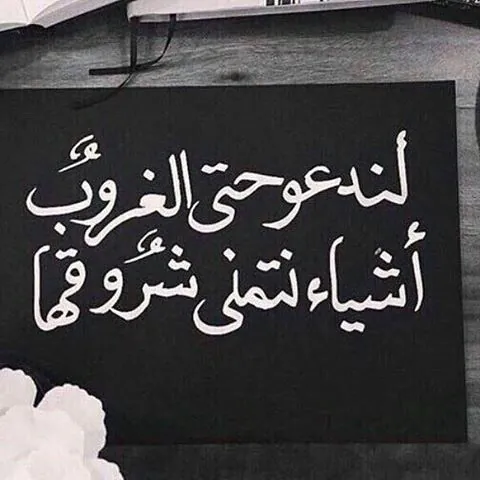 ألندعو حتى الغروبُ
أشياء نتمنى شُروقها